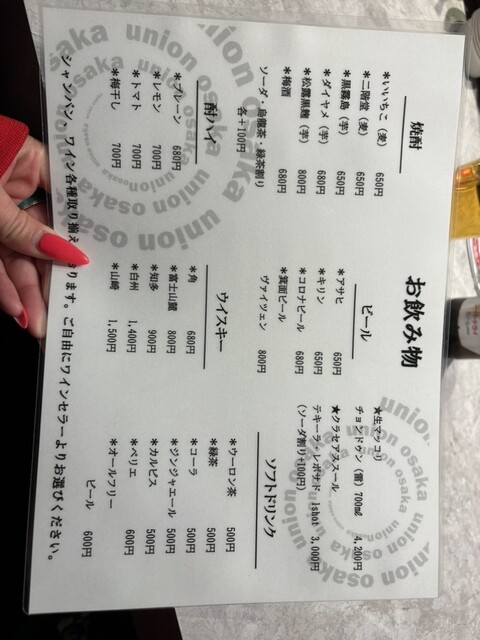 お飲み物
焼酎
*いいちこ（麦） 650円
*二階堂（麦） 650円
*黒霧島（芋） 650円
*ダイヤメ（芋） 680円
*松露黒麹（芋） 800円
*梅酒 680円
ソーダ・烏龍茶・緑茶割り
各＋100円
酎ハイ
*プレーン 680円
*レモン 700円
*トマト 700円
*梅干し 700円
ビール
*アサヒ 650円
*キリン 650円
*コロナビール 680円
*箕面ビール
ヴァイツェン 800円
ウイスキー
*角 680円
*富士山麓 800円
*知多 900円
*白州 1,400円
*山崎 1,500円
★生マッコリ
チョンドゥン（雷）700ml 4,200円
★クラセアスール
テキーラ・レポサド 1shot 3,000円
（ソーダ割り+100円）
ソフトドリンク
*ウーロン茶 500円
*緑茶 500円
*コーラ 500円
*ジンジャエール 500円
*カルピス 500円
*ペリエ 600円
*オールフリー
ビール 600円
シャンパン、ワイン各種取り揃え おります。ご自由にワインセラーよりお選びください。
union osaka union osaka union osaka
union osaka